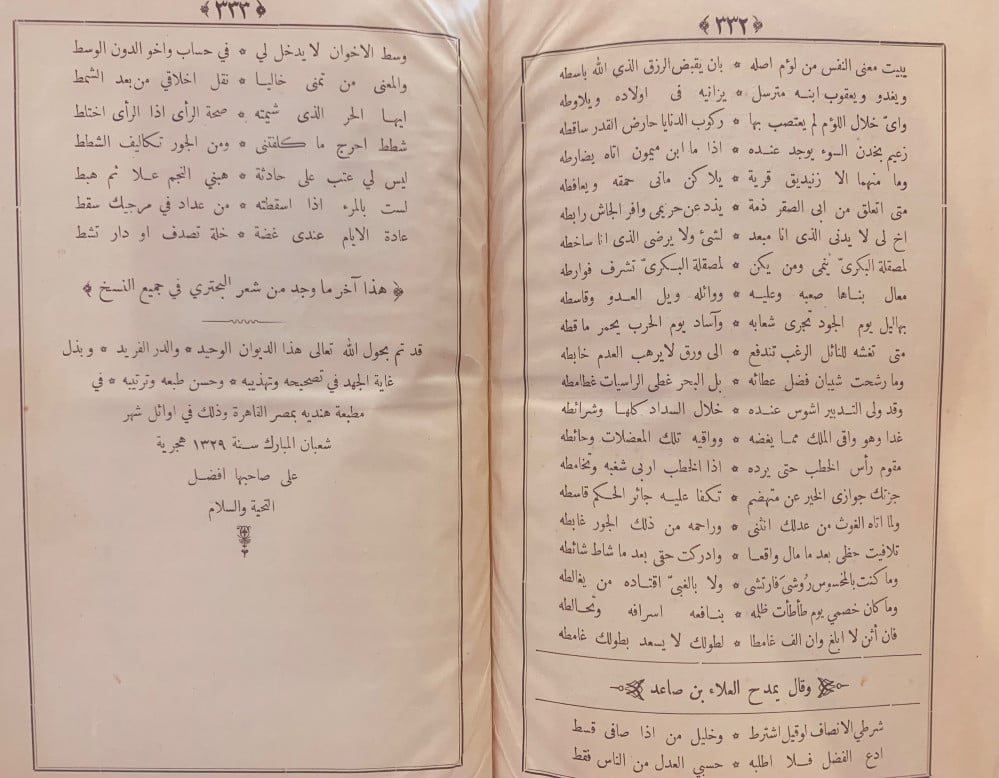 ﴿ ٣٣٢ ﴾
يبيت معنى النفس من لؤم اصله * بان يقبض الرزق الذى الله باسطه
ويغدو ويعقوب ابنه مترسل * يزانيه فى اولاده ويلاوطه
واىّ خلال اللؤم لم يعتصب بها * ركوب الدنايا حارض القدر ساقطه
زعيم بخدن السوء يوجد عنده * اذا ما ابن ميمون اتاه يضارطه
وما منهما الا زنيديق قرية * يلاكن مانى حمقه ويعافطه
متى اتعلق من ابى الصقر ذمة * يذد عن حريمى وافر الجاش رابطه
اخ لى لا يدنى الذى انا مبعد * لشئ ولا يرضى الذى انا ساخطه
لمصقلة البكرىّ ينمى ومن يكن * لمصقلة البكرىّ تشرف فوارطه
معال بناها صعبه وعليه * ووائله ويل العدو وقاسطه
بهاليل يوم الجود تجرى شعابه * وآساد يوم الحرب يحمر ماقطه
متى تغشه للنائل الرغب تندفع * الى ورق لا يرهب العدم خابطه
وما رشحت شيبان فضل عطائه * بل البحر غطى الراسيات غطامطه
وقد ولى التدبير اشوس عنده * خلال السداد كلها وشرائطه
غدا وهو واقى الملك مما يغضه * وواقيه تلك المعضلات وحائطه
مقوم رأس الخطب حتى يرده * اذا الخطب اربى شغبه وتخامطه
جزتك جوازى الخير عن متهضم * تكفا عليه جائر الحكم قاسطه
ولما اتاه الغوث من عدلك انثنى * وراحمه من ذلك الجور غابطه
تلافيت حظى بعد ما مال واقعا * وادركت حقى بعد ما شاط شائطه
وما كنت بالمخسوس رُوشىَ فارتشى * ولا بالغبىّ اقتاده من يغالطه
وما كان خصمي يوم طأطأت ظلمه * بنافعه اسرافه وتخالطه
فان أثن لا ابلغ وان الف غامطا * لطولك لا يسعد بطولك غامطه
وقال يمدح العلاء بن صاعد
شرطي الانصاف لو قيل اشترط * وخليل من اذا صافى قسط
ادع الفضل فلا اطلبه * حسبي العدل من الناس فقط
﴿ ٣٣٣ ﴾
وسط الاخوان لا يدخل لي * في حساب واخو الدون الوسط
والمعنى من تمنى خاليا * نقل اخلاقي من بعد الشمط
ايها الحر الذى شيمته * صحة الرأى اذا الرأى اختلط
شطط احرج ما كلفتنى * ومن الجور تكاليف الشطط
ليس لي عتب على حادثة * هبني النجم علا ثم هبط
لست بالمرء اذا اسقطته * من عداد في مرجيك سقط
عادة الايام عندى غضة * خلة تصدف او دار تشط
﴿ هذا آخر ما وجد من شعر البحتري في جميع النسخ ﴾
قد تم بحول الله تعالى هذا الديوان الوحيد * والدر الفريد * وبذل
غاية الجهد في تصحيحه وتهذيبه * وحسن طبعه وترتيبه * في
مطبعة هنديه بمصر القاهرة وذلك في اوائل شهر
شعبان المبارك سنة ١٣٢٩ هجرية
على صاحبها افضل
التحية والسلام